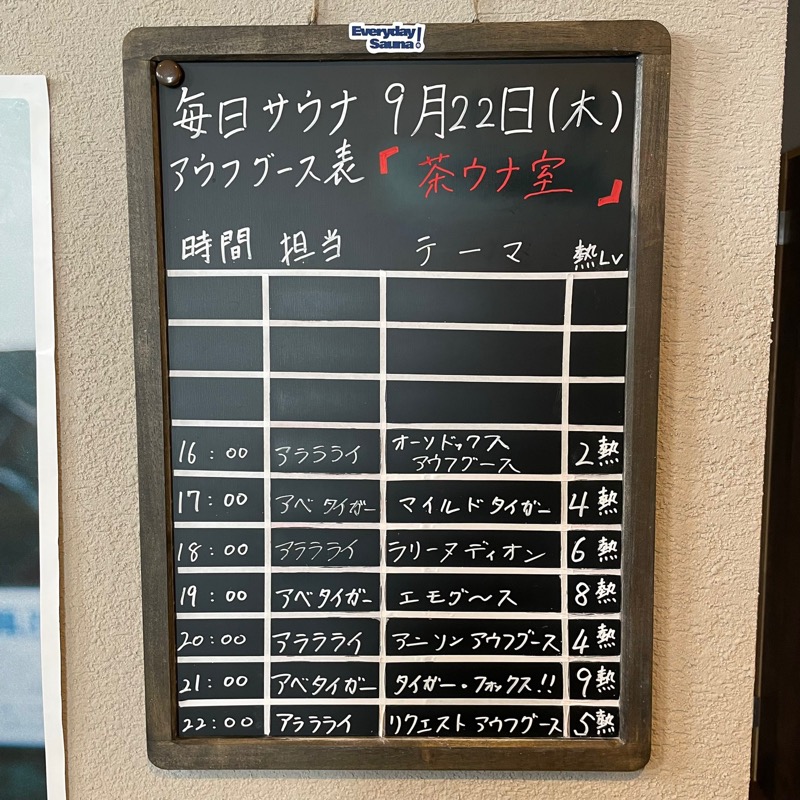 Everyday
Sauna!
毎日サウナ 9月22日(木)
アウフグース表『茶ウナ室』
時間 担当 テーマ 熱Lv
16:00 アララライ オーソドックス アウフグース 2熱
17:00 アベタイガー マイルドタイガー 4熱
18:00 アララライ ラリーヌディオン 6熱
19:00 アベタイガー エモグ〜ス 8熱
20:00 アララライ アニソンアウフグース 4熱
21:00 アベタイガー タイガー・フォックス!! 9熱
22:00 アララライ リクエストアウフグース 5熱